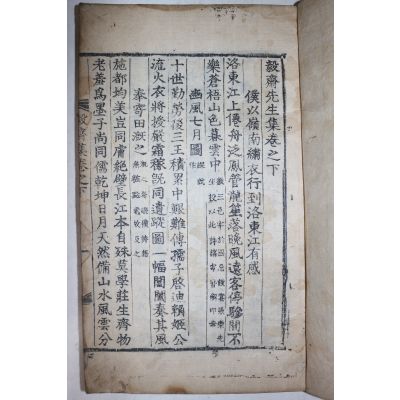 毅齋先生集卷之下
僕以嶺南繡衣行到洛東江有感
洛東江上僊舟泛鳳管龍笙落晚風遠客停驂聞不
樂蒼梧山色暮雲中
豳風七月圖
十世勤勞後三王積累中艱難傳孺子啓迪賴姬公
流火衣將授嚴霜稼旣同遺蹤圖一幅閭閻泰其風
泰寄田漑之
施都均美豈同膚絶壁長江本自殊莫學莊生齊物
老羞爲墨子尚同儒乾坤日月天然備山水風雲分
毅齋集卷之下